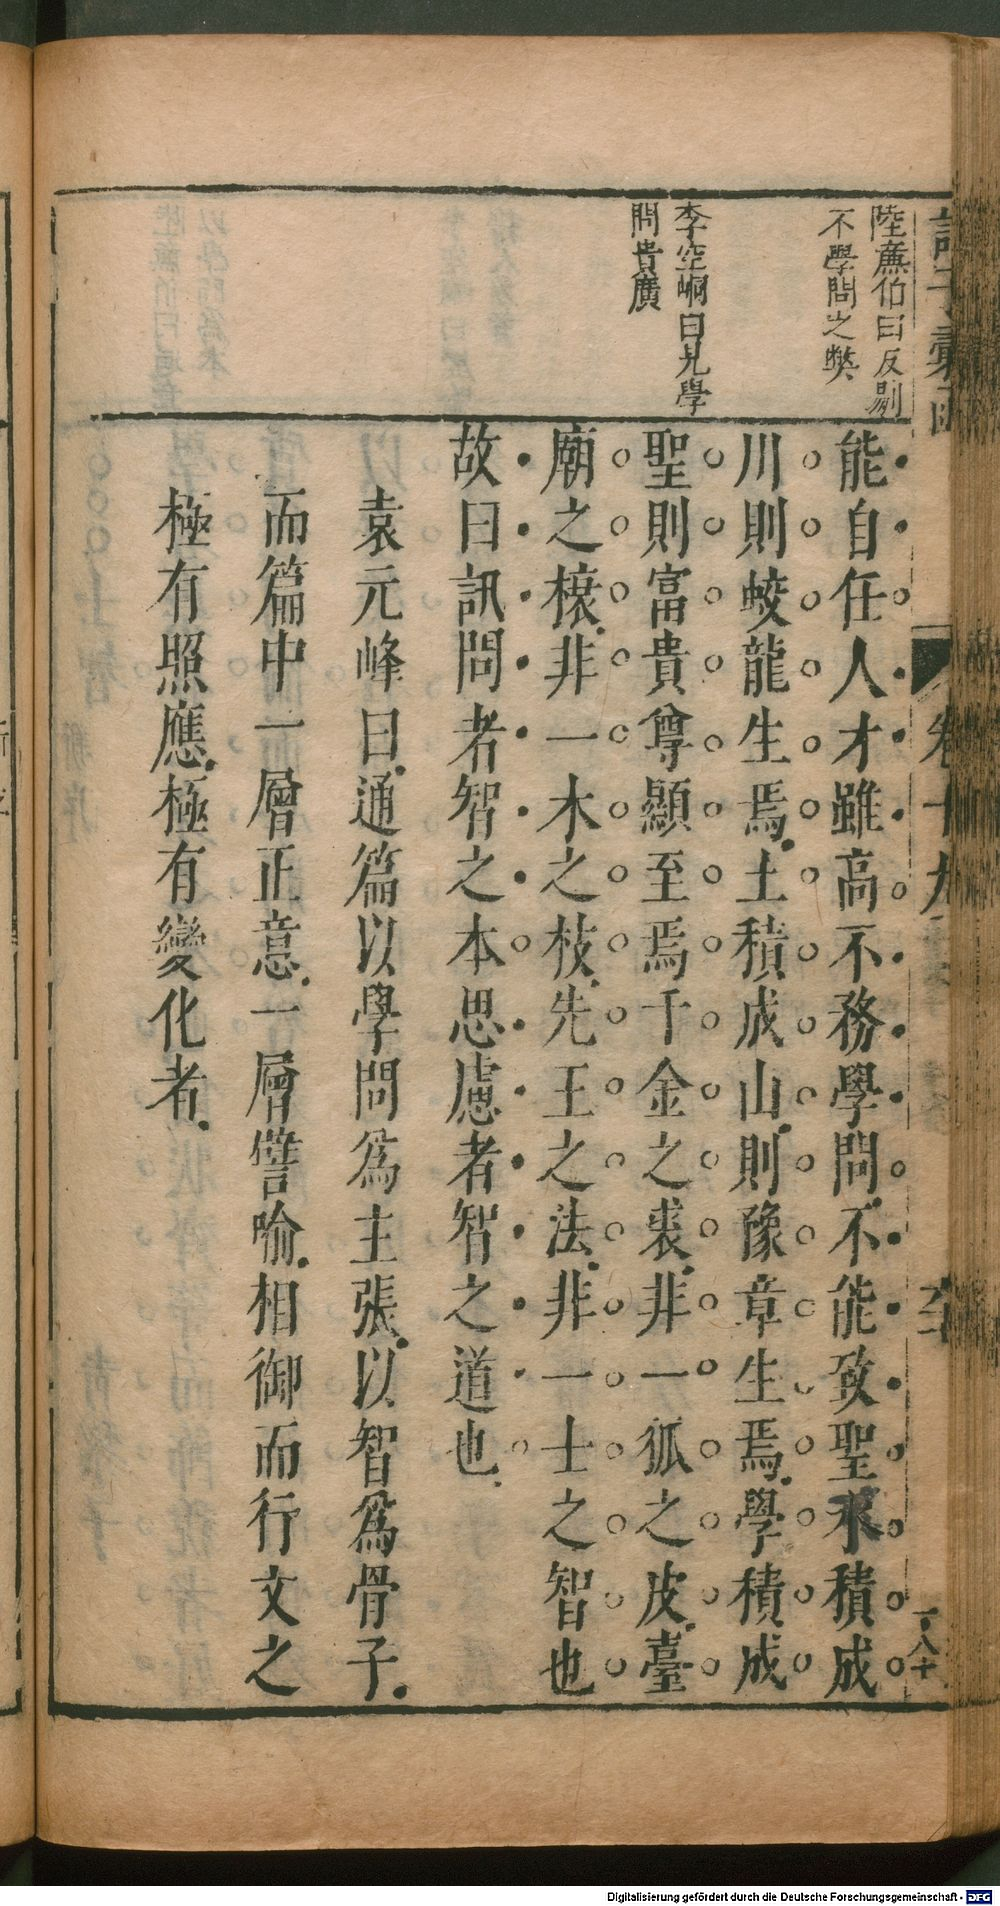 陸廉伯曰反剔
不學問之獘
李空峒曰見學
問貴廣
能自任人才雖高不務學問不能致聖水積成
川則蛟龍生焉土積成山則豫章生焉學積成
聖則富貴尊顯至焉千金之裘非一狐之皮臺
廟之榱非一木之枝先王之法非一士之智也
故曰訊問者智之本思慮者智之道也
袁元峰曰通篇以學問爲主張以智爲骨子
而篇中一層正意一層譬喻相御而行文之
極有照應極有變化者
卷十九
Digitalisierung gefördert durch die Deutsche Forschungsgemeinschaft - DFG